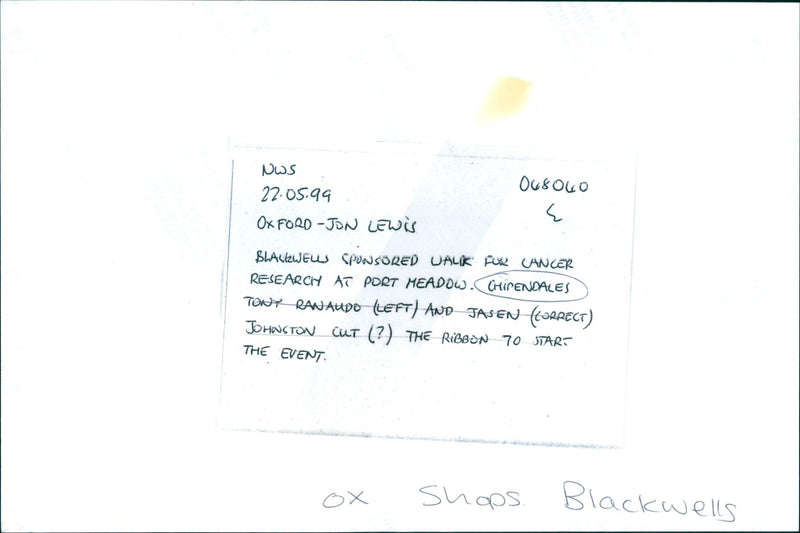 NWS
048040
22.05.99
OXFORD - JON LEWIS
BLACKWELLS SPONSORED WALK FOR CANCER
RESEARCH AT PORT MEADOW. CHIPENDALES
TONY RANAUDO (LEFT) AND JASEN (CORRECT)
JOHNSTON CUT (?) THE RIBBON TO START
THE EVENT.
OX Shops Blackwells